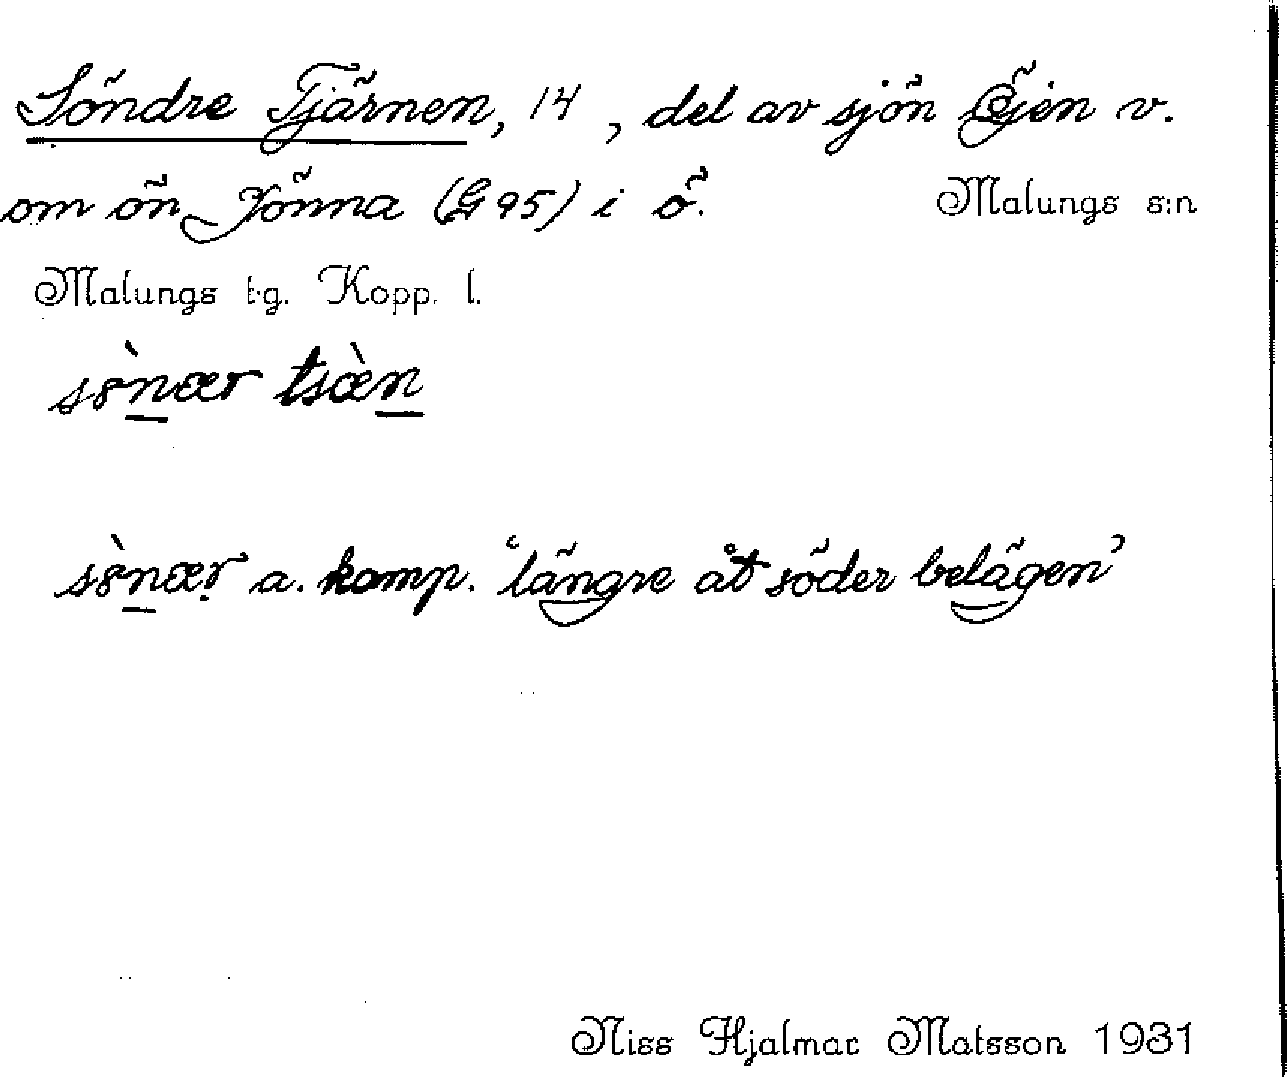 Söndre Tjärnen, 14, del av sjön Öjen v.
om ön Jönna (G 95) i ö. Malungs s:n
Malungs t.g. Kopp. l.
sònær tsæ̀n
sònær a. komp. 'längre åt söder belägen'
Niss Hjalmar Matsson 1931